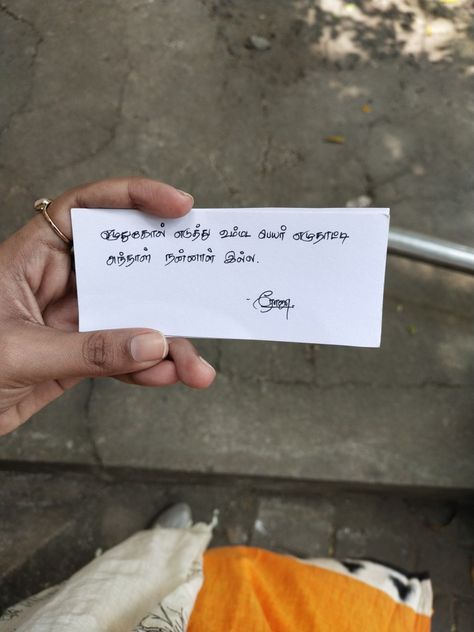 எழுதுகோல் எடுத்து உம்ம பெயர் எழுதாட்டி
அந்நாள் நன்னாள் இல்ல.